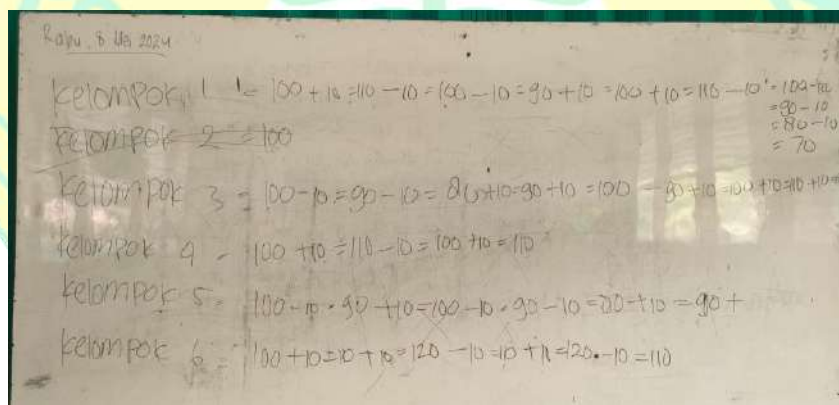 Rabu, 8 Mei 2024
Kelompok 1 = 100 + 10 = 110 - 10 = 100 - 10 = 90 + 10 = 100 + 10 = 110 - 10 = 100 - 10
= 90 - 10
= 80 - 10
= 70
Kelompok 2 = 100
Kelompok 3 = 100 - 10 = 90 - 10 = 80 + 10 = 90 + 10 = 100 - 90 + 10 = 100 + 10 = 110 + 10 =
Kelompok 4 = 100 + 10 = 110 - 10 = 100 + 10 = 110
Kelompok 5 = 100 - 10 = 90 + 10 = 100 - 10 = 90 - 10 = 80 + 10 = 90 +
Kelompok 6 = 100 + 10 = 10 + 10 = 120 - 10 = 10 + 11 = 120 - 10 = 110